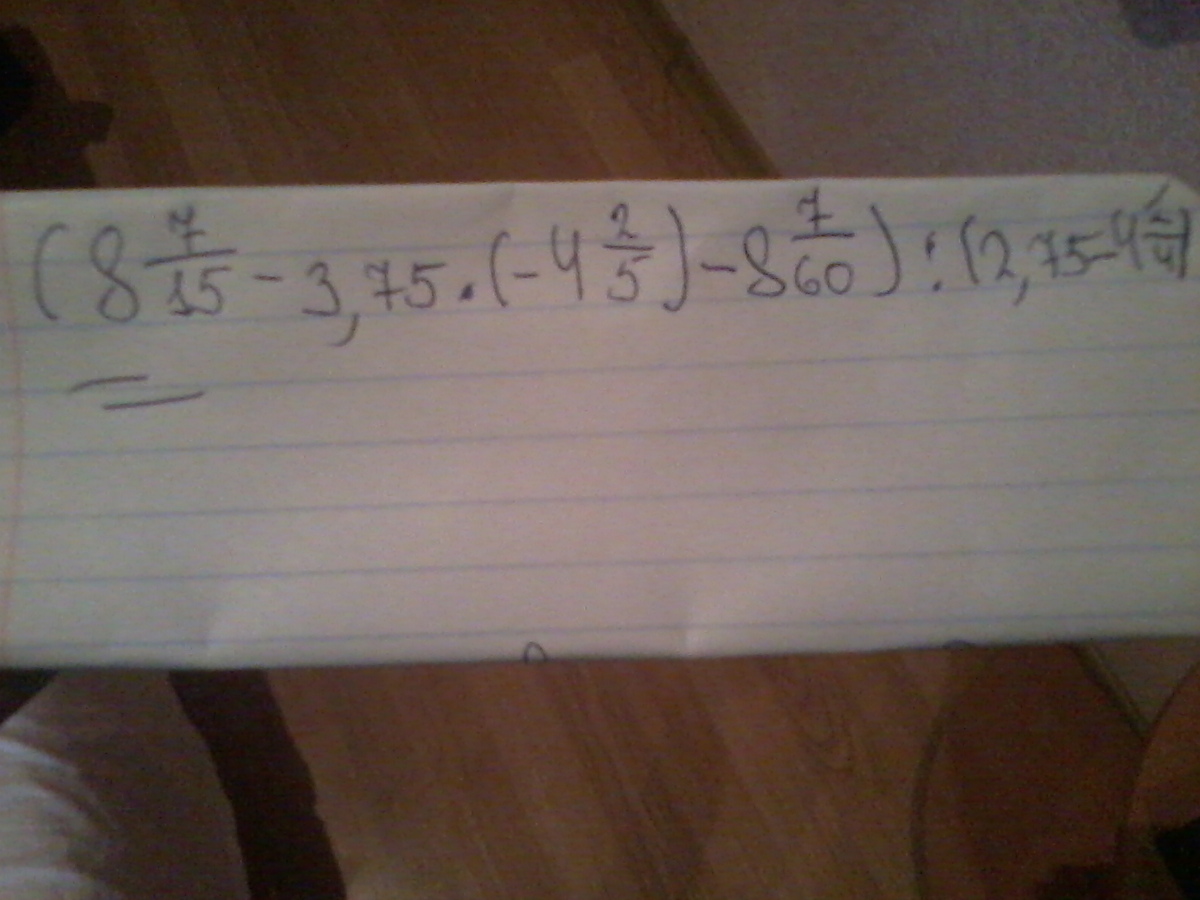 (8 7/15 - 3,75 · (-4 2/5) - 8 7/60) : (2,75 - 4
=